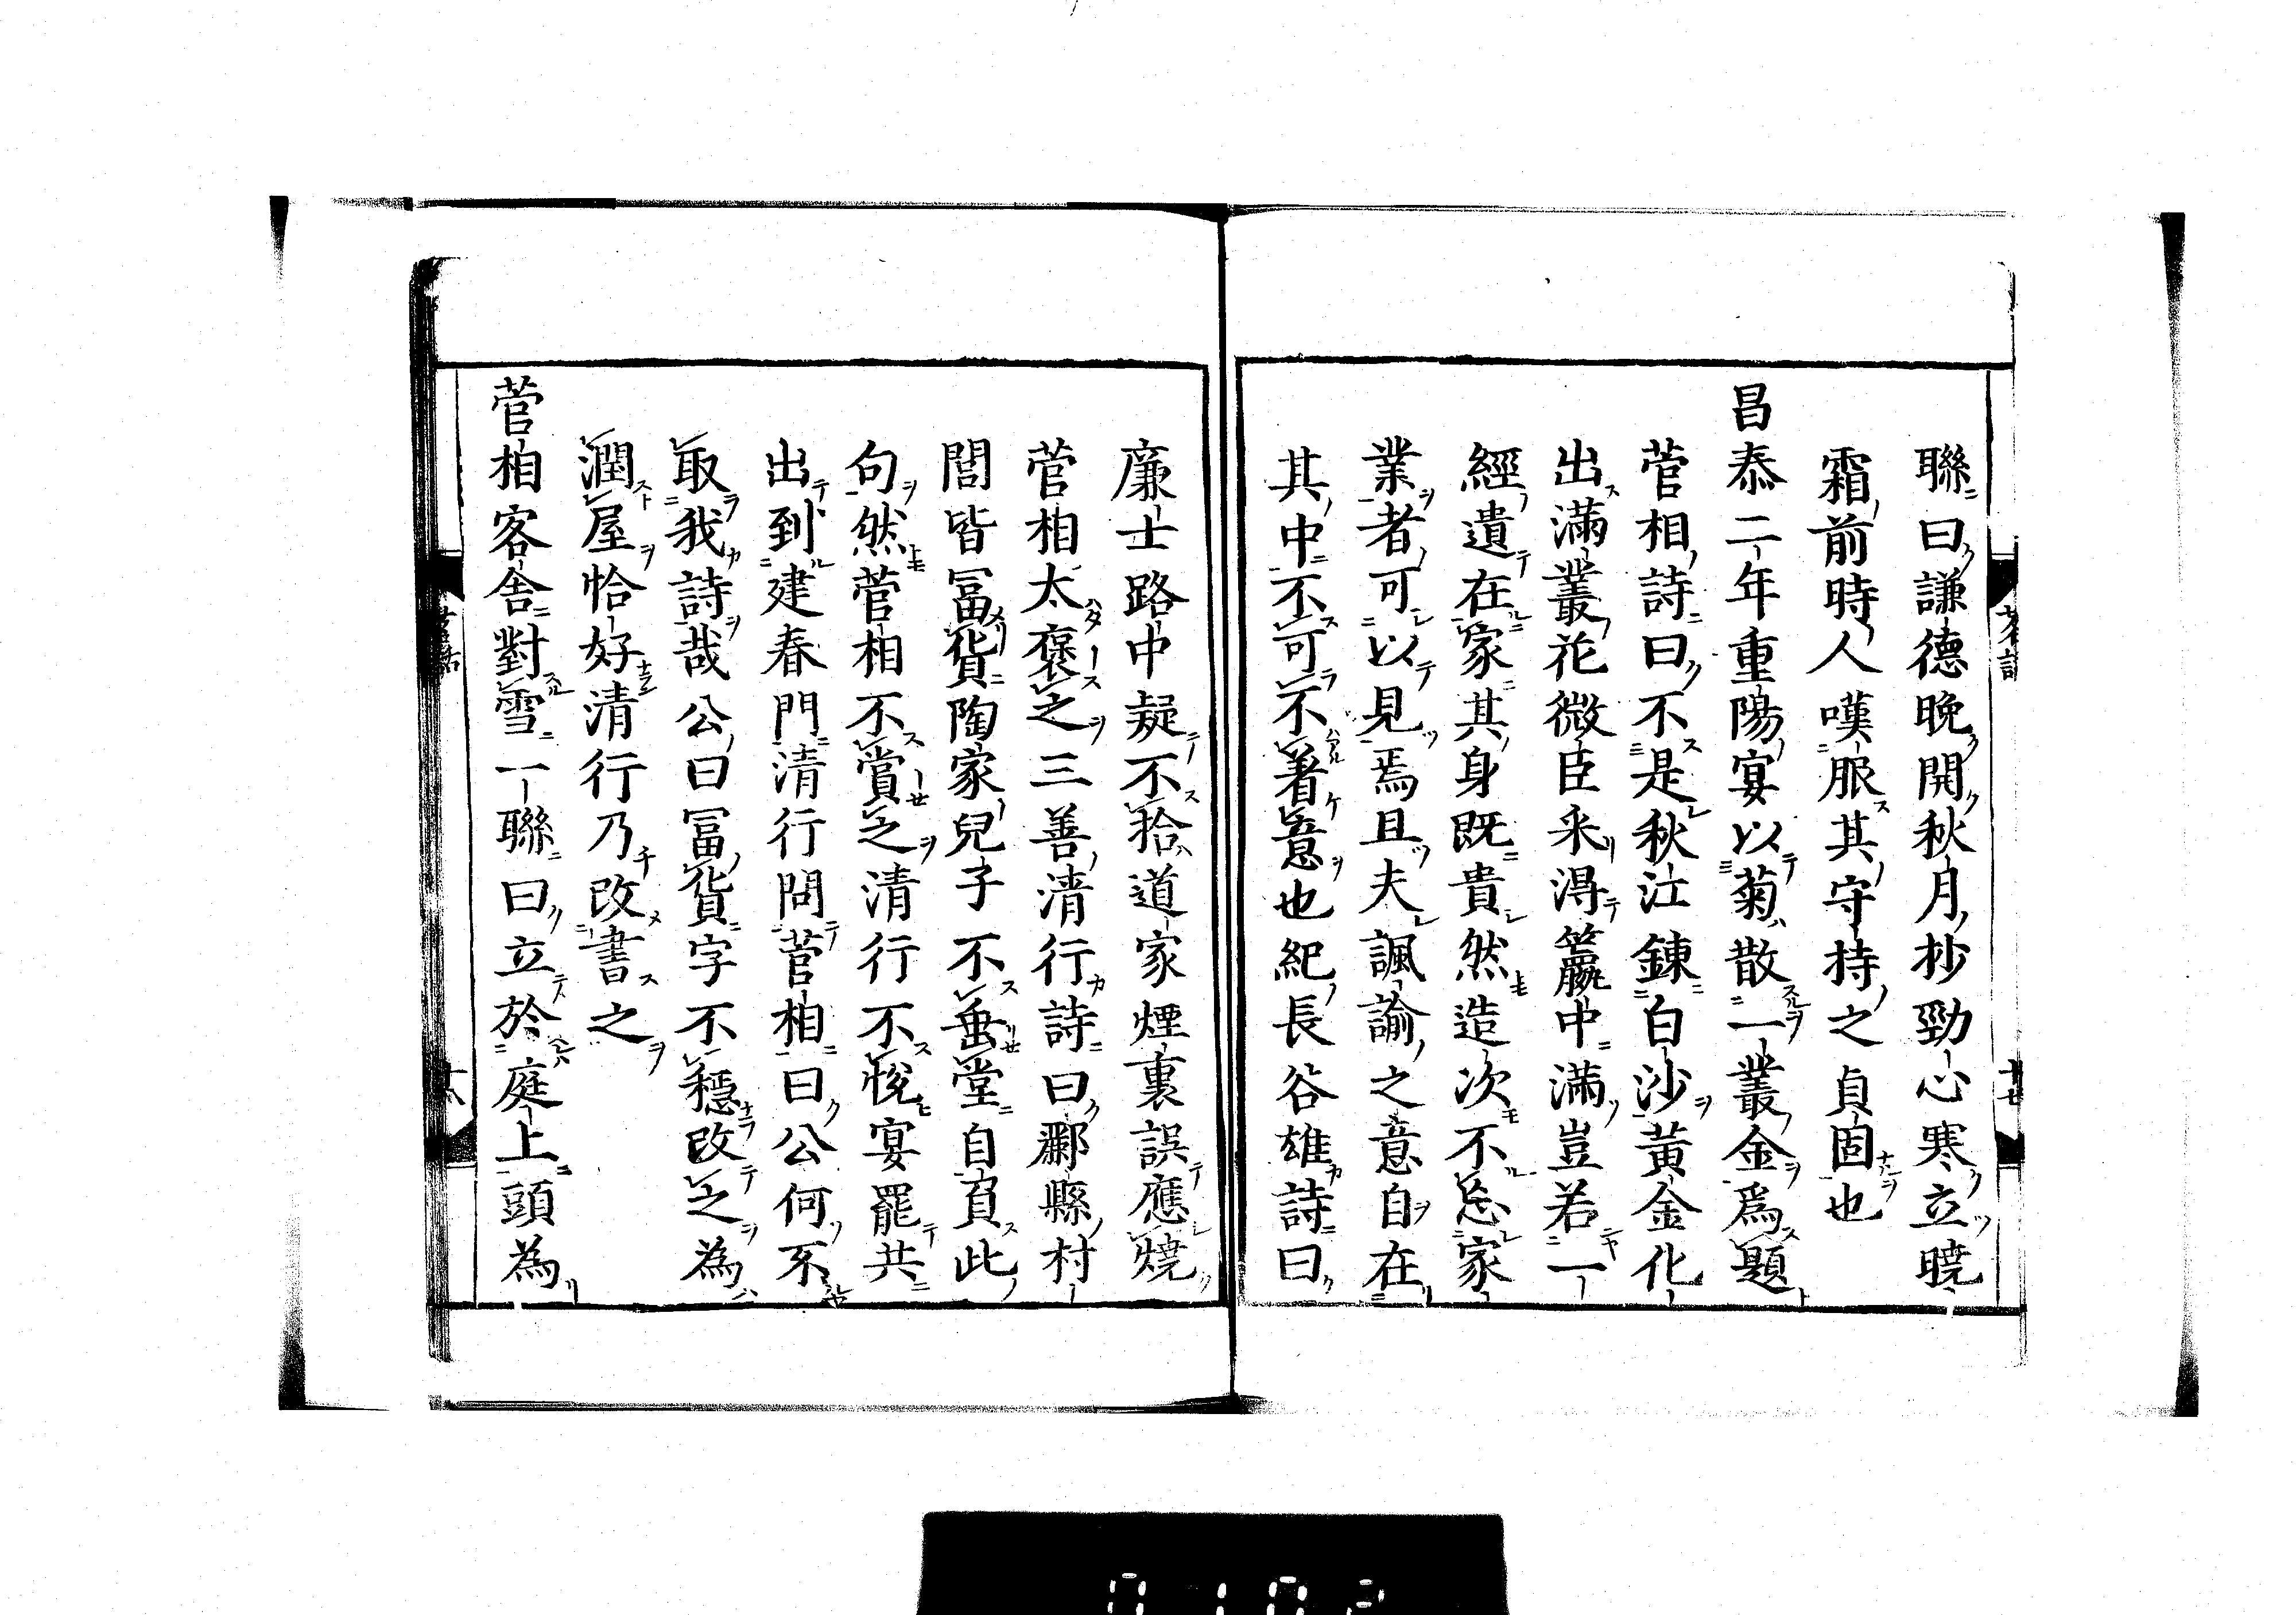 聯曰謙德晚開秋月抄勁心寒立曉
霜前時人嘆服其守持之貞固也
昌泰二年重陽宴以菊散一叢金爲題
菅相詩曰不是秋江鍊白沙黃金化
出滿叢花微臣采得籯中滿豈若一
經遺在家其身既貴然造次不忘家
業者可以見焉且夫諷諭之意自在
其中不可不著意也紀長谷雄詩曰
廉士路中疑不拾道家煙裏誤應燒
菅相太褒之三善清行詩曰酈縣村
閭皆冨貨陶家兒子不垂堂自負此
句然菅相不賞之清行不悅宴罷共
出到建春門清行問菅相曰公何不
取我詩哉公曰冨貨字不穩改之為
潤屋恰好清行乃改書之
菅相客舍對雪一聯曰立於庭上頭為